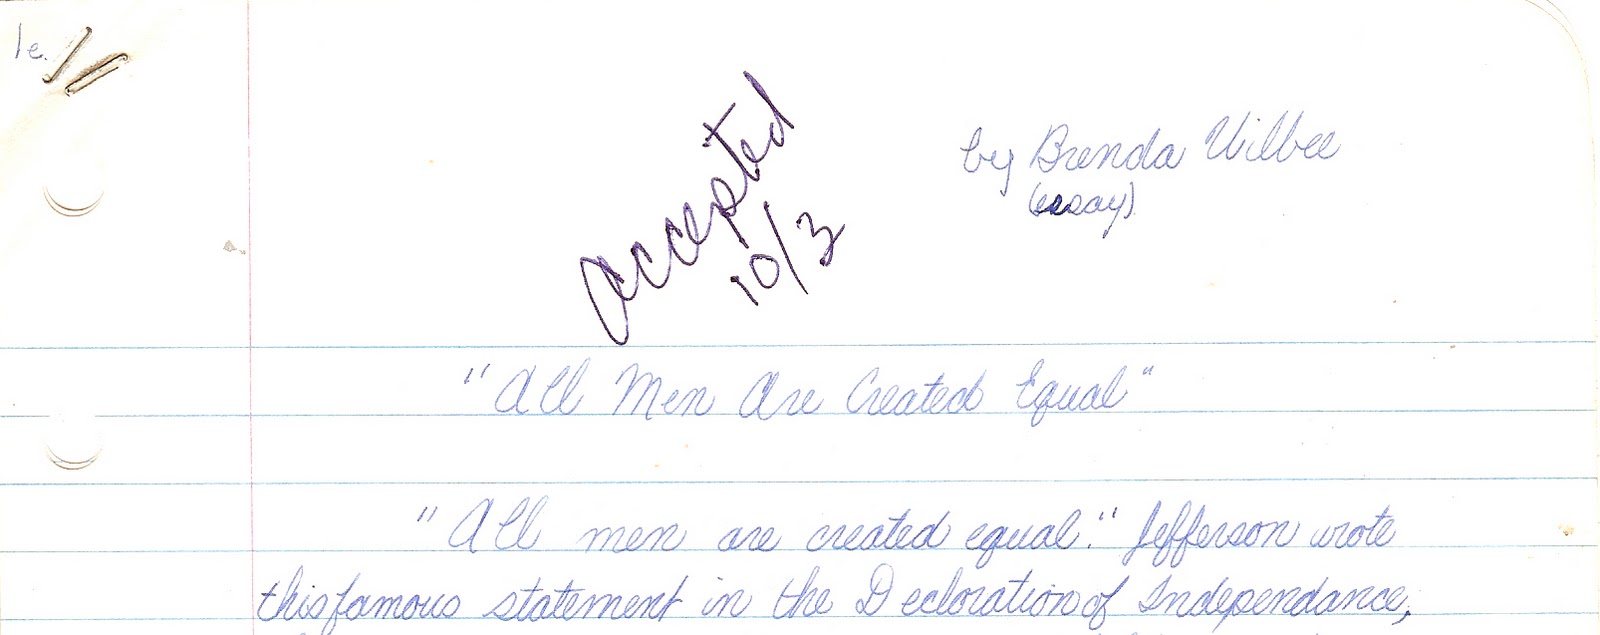 1e.
accepted
10/3
by Brenda Wilbee
(essay)
"All Men Are Created Equal"
"All men are created equal." Jefferson wrote
this famous statement in the Decloration of Independance,